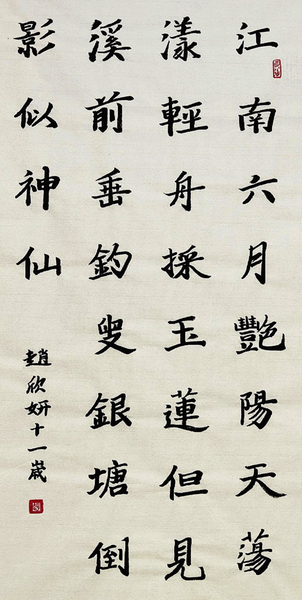 江南六月豔陽天蕩
漾輕舟採玉蓮但見
溪前垂釣叟銀塘倒
影似神仙
趙欣妍十一歲